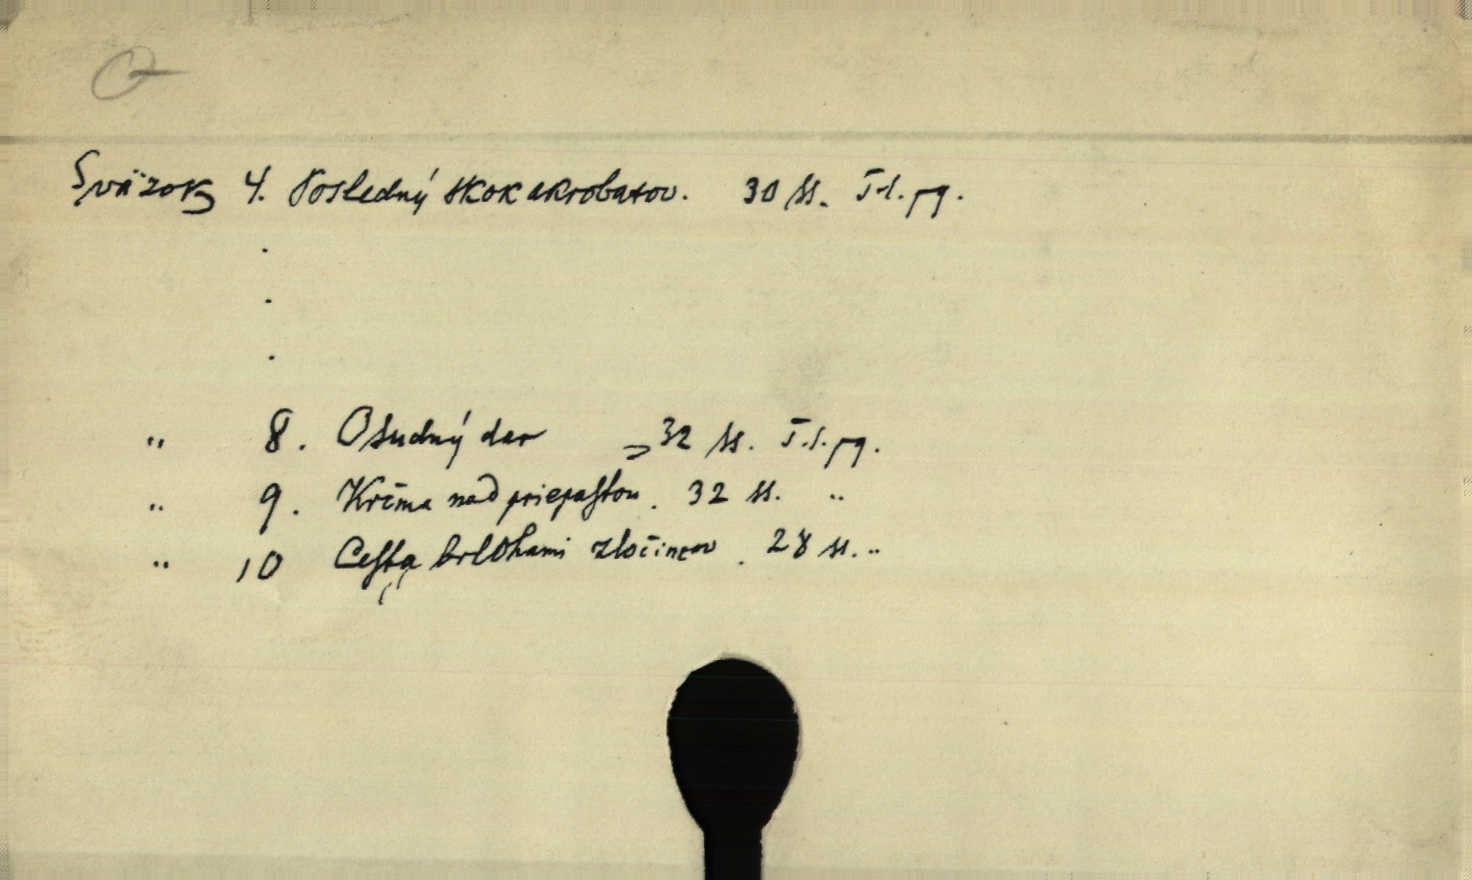 Sväzok 4. Posledný skok akrobatov. 30 ss. T.l. pg.
.
.
.
" 8. Osudný dar 32 ss. T.l. pg.
" 9. Krčma nad priepasťou. 32 ss. "
" 10 Cesta brlohami zločincov. 28 ss. "